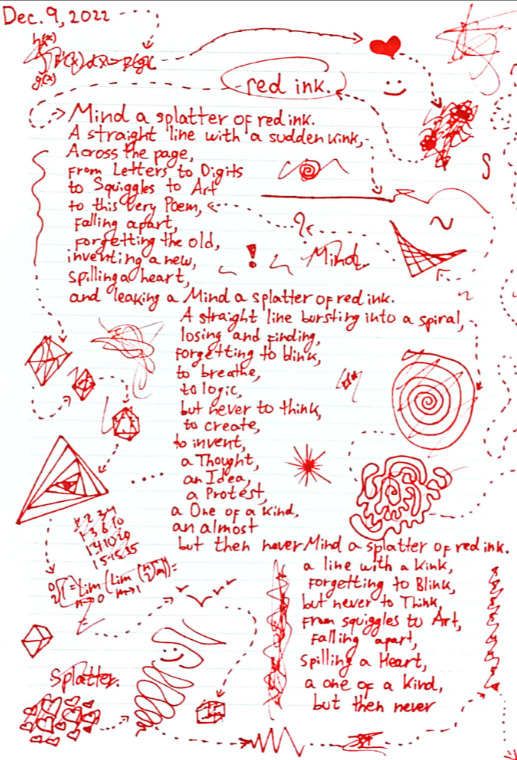 Dec. 9, 2022
h(x)
g(x)
red ink.
Mind a splatter of red ink.
A straight line with a sudden kink,
Across the page,
From Letters to Digits
to Squiggles to Art
to this very Poem,
Falling apart,
Forgetting the old,
inventing a new,
spilling a heart,
and leaking a Mind a splatter of red ink.
?
!
Mind
A straight line bursting into a spiral,
losing and finding,
Forgetting to blink,
to breathe,
to logic,
but never to think,
to create,
to invent,
a Thought,
an Idea,
a Protest,
a One of a kind,
an almost
but then never Mind a splatter of red ink.
a line with a kink,
Forgetting to Blink,
but never to Think,
From squiggles to Art,
Falling apart,
Spilling a Heart,
a one of a kind,
but then never
1 2 3 4
1 3 6 10
1 4 10 20
1 5 15 35
Splatter.